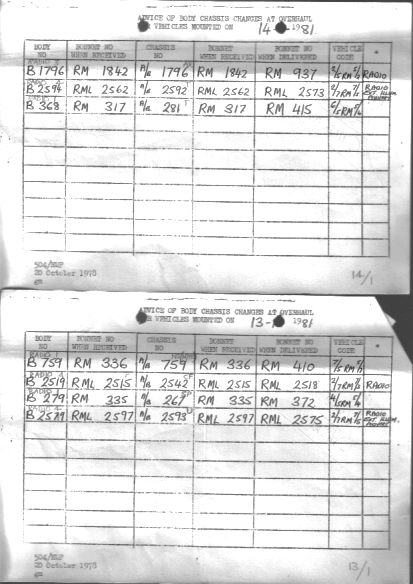 ADVICE OF BODY CHASSIS CHANGES AT OVERHAUL
VEHICLES MOUNTED ON 14- -1981
BODY NO BONNET NO WHEN RECEIVED CHASSIS NO BONNET WHEN RECEIVED BONNET WHEN DELIVERED VEHICLE CODE *
B1796 RM 1842 A/B 1796 RM 1842 RM 937 RADIO
B2594 RML 2562 A/B 2592 RML 2562 RML 2573 2/7RM7/5 RADIO EXT. ILLUM.
B 368 RM 317 A/B 281 RM 317 RM 415
504/EUP
20 October 1978
gm
14/1
ADVICE OF BODY CHASSIS CHANGES AT OVERHAUL
VEHICLES MOUNTED ON 13- 1981
BODY NO BONNET NO WHEN RECEIVED CHASSIS NO BONNET WHEN RECEIVED BONNET WHEN DELIVERED VEHICLE CODE *
B 759 RM 336 A/B 759 RM 336 RM 410
B2519 RML 2515 A/B 2542 RML 2515 RML 2518 2/7RM7/5 RADIO
B 279 RM 335 A/B 267 RM 335 RM 372
RML 2597 A/B 2593 RML 2597 RML 2575 2/7RM7/5 RADIO EXT. ILLUM.
504/EUP
20 October 1978
gm
13/1